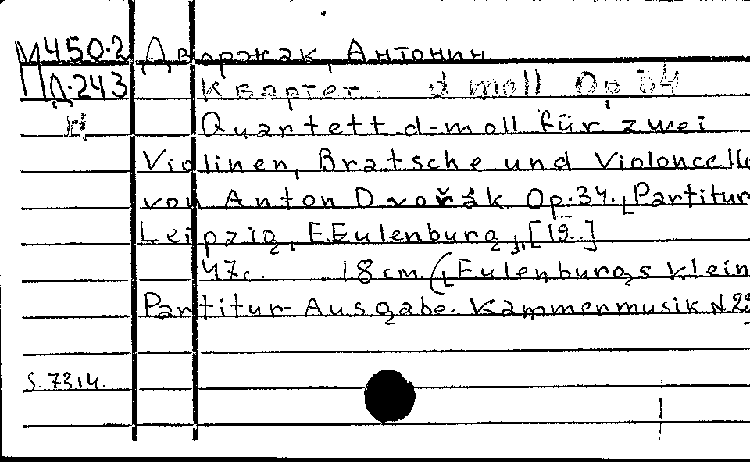 М450.2 Дворжак, Антонин
Д.243 Квартет d moll Op 34
Quartett d-moll für zwei
Violinen, Bratsche und Violoncello
von Anton Dvořák Op.34. [Partitur
Leipzig, E.Eulenburg, [19..]
47с. 18 cm. ([Eulenburgs klein
Partitur-Ausgabe. Kammermusik N
S. 7314.